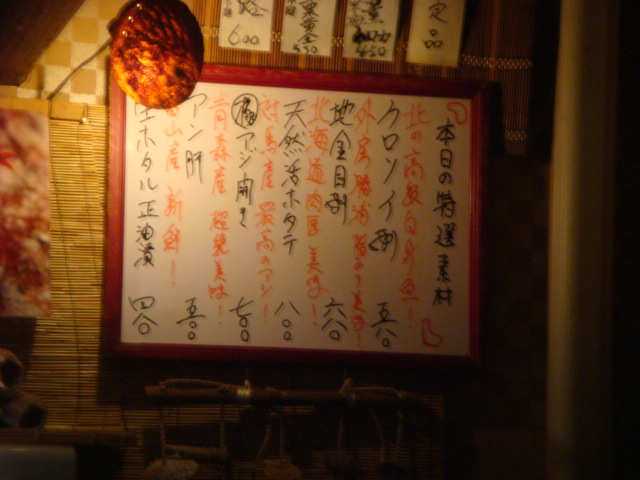 本日の特選素材
北の高級白身魚!
クロソイ刺 五八〇
外房勝浦 脂のり美味!
地金目刺 六八〇
北海道肉厚 美味!
天然活ホタテ 八〇〇
対馬産 最高のアジ!
アジ開き 七〇〇
青森産 超絶美味!
アン肝 五〇〇
山産 新鮮!
ホタル正油漬 四八〇
定品
450
黄金
530
600